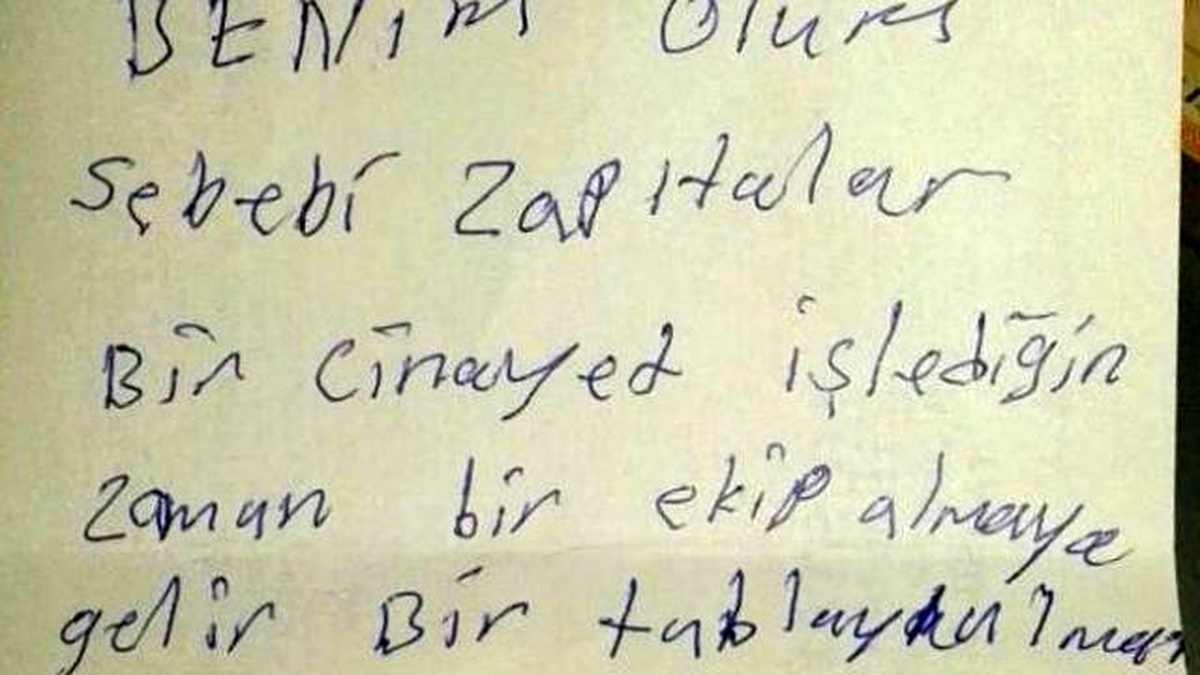 BENim ölüm
Sebebi Zapıtalar
Bir Cinayed işlediğin
Zaman bir ekip almaya
gelir Bir